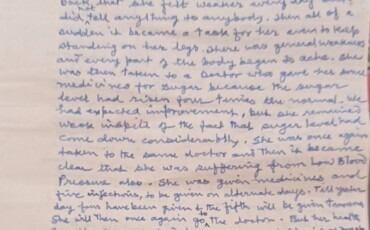 back, that she felt weaker every day but
did not tell anything to anybody. Then all of a
sudden it became a task for her even to keep
standing on her legs. There was general weakness
and every part of the body began to ache. She
was then taken to a Doctor who gave her some
medicines for sugar because the sugar
level had risen four times the normal. We
had expected improvement, but she remained
weak inspite of the fact that sugar level had
come down considerably. She was once again
taken to the same doctor and then it became
clear that she was suffering from low Blood
Pressure also. She was given medicines and
five injections, to be given on alternate days. Till yester
day four have been given & the fifth will be given tomorrow
She will then once again go to the doctor. But her health